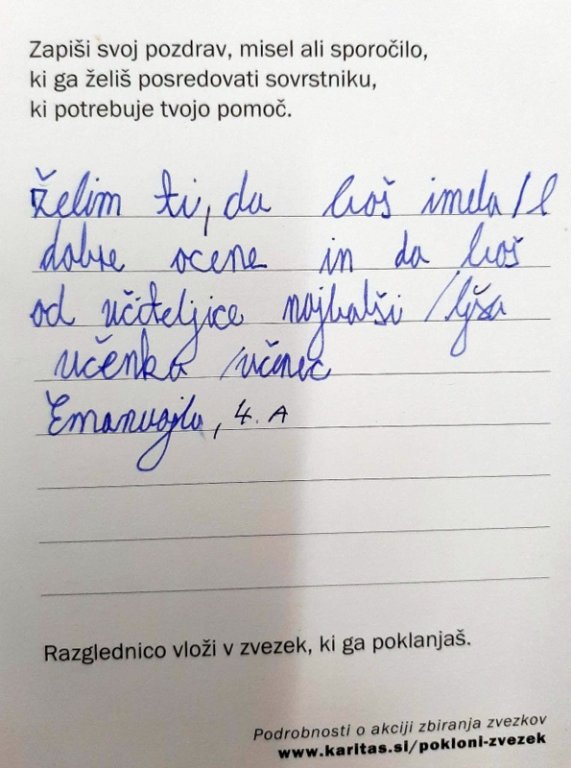 Zapiši svoj pozdrav, misel ali sporočilo,
ki ga želiš posredovati sovrstniku,
ki potrebuje tvojo pomoč.
Želim ti, da boš imela/l
dobre ocene in da boš
od učiteljice najbalši/ljša
učenka/učenec
Emanuajla, 4. A
Razglednico vloži v zvezek, ki ga poklanjaš.
Podrobnosti o akciji zbiranja zvezkov
www.karitas.si/pokloni-zvezek